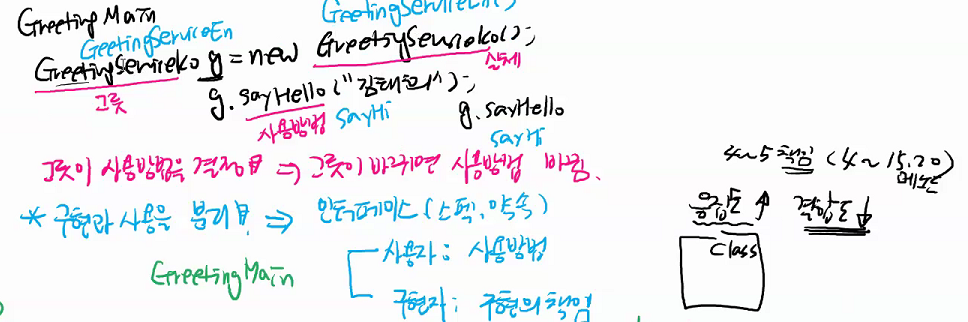 GreetingMain
GeetingServiceEn
GreetingServiceEn();
GreetingServiceKo g = new GreetingServiceKo();
그릇
실체
g.sayHello("김태희");
사용방법 sayHi
g.sayHello
sayHi
그릇이 사용방법을 결정 ⇒ 그릇이 바뀌면 사용방법 바뀜.
* 구현과 사용을 분리 ⇒ 인터페이스(스펙, 약속)
사용자: 사용방법
구현자: 구현의 책임
GreetingMain
4~5 책임 (4~15, 20)
메소드
응집도↑ 결합도↓
Class